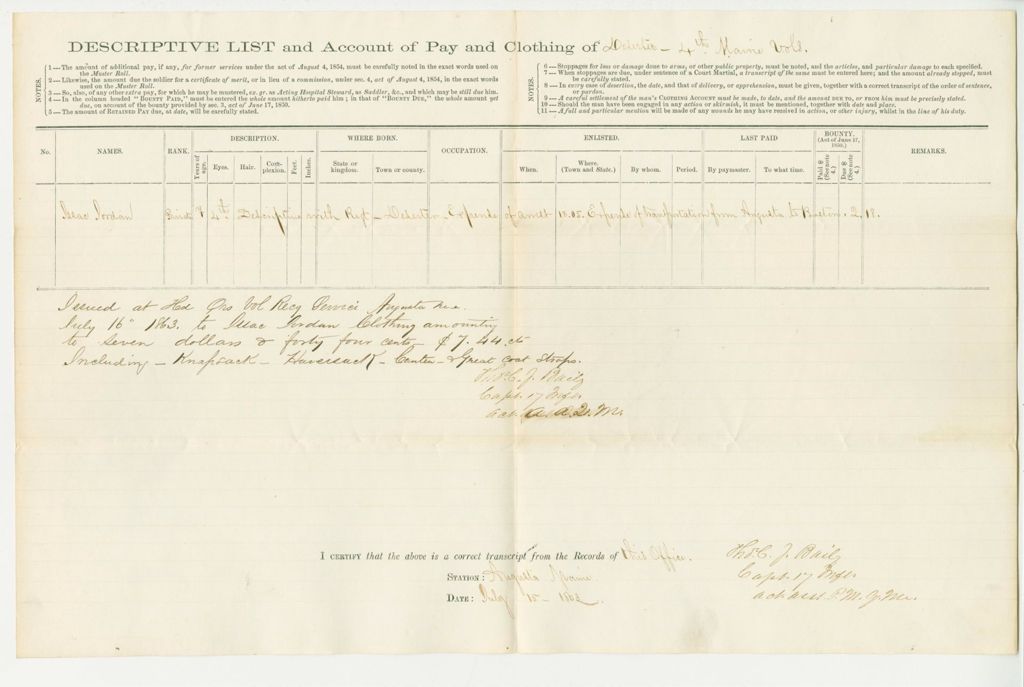 DESCRIPTIVE LIST and Account of Pay and Clothing of Deserter - 4th Maine Vols.
NOTES.
1—The amount of additional pay, if any, for former services under the act of August 4, 1854, must be carefully noted in the exact words used on
the Muster Roll.
2—Likewise, the amount due the soldier for a certificate of merit, or in lieu of a commission, under sec. 4, act of August 4, 1854, in the exact words
used on the Muster Roll.
3—So, also, of any other extra pay, for which he may be mustered, ex. gr. as Acting Hospital Steward, as Saddler, &c., and which may be still due him.
4—In the column headed "BOUNTY PAID," must be entered the whole amount hitherto paid him; in that of "BOUNTY DUE," the whole amount yet
due, on account of the bounty provided by sec. 3, act of June 17, 1850.
5—The amount of RETAINED PAY due, at date, will be carefully stated.
NOTES.
6—Stoppages for loss or damage done to arms, or other public property, must be noted, and the articles, and particular damage to each specified.
7—When stoppages are due, under sentence of a Court Martial, a transcript of the same must be entered here; and the amount already stopped, must
be carefully stated.
8—In every case of desertion, the date, and that of delivery, or apprehension, must be given, together with a correct transcript of the order of sentence,
or pardon.
9—A careful settlement of the man's CLOTHING ACCOUNT must be made, to date, and the amount DUE TO, or FROM him must be precisely stated.
10—Should the man have been engaged in any action or skirmish, it must be mentioned, together with date and place.
11—A full and particular mention will be made of any wounds he may have received in action, or other injury, whilst in the line of his duty.
No. NAMES. RANK. DESCRIPTION. WHERE BORN. OCCUPATION. ENLISTED. LAST PAID BOUNTY. (Act of June 17, 1850.) REMARKS.
Years of age. Eyes. Hair. Complexion. Feet. Inches. State or kingdom. Town or county. When. Where. (Town and State.) By whom. Period. By paymaster. To what time. Paid $ (See note 4.) Due $ (See note 4.)
Isaac Jordan Private F 4th Descriptive with Regt - Deserter - Expense of arrest 10.05. Expense of transportation from Augusta to Boston. 2.18.
Issued at Hd Qrs Vol Recg Service Augusta Me.
July 16" 1863. to Isaac Jordan Clothing amounting
to seven dollars & forty four cents $7.44 cts
Including - Knapsack - Haversack - Canteen - & Great coat straps.
Thos. C. J. Baily
Capt. 17 Infy.
act A. A. Q. M.
I CERTIFY that the above is a correct transcript from the Records of this Office.
STATION: Augusta Maine.
DATE: July 15 - 1863.
Thos. C. J. Baily
Capt. 17 Infy.
act asst P. M. G. Me.